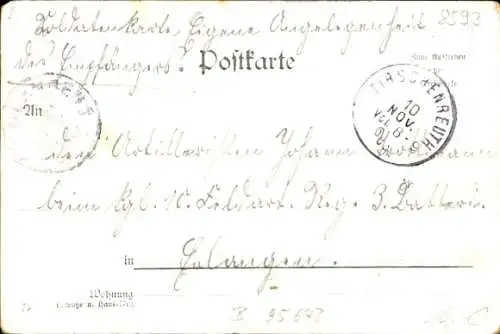 Soldatenkarte, Eigene Angelegenheit 8593
des Empfängers!
Postkarte
TIRSCHENREUTH
10
NOV.
An
den Artilleristen Johann
beim kgl. 10. Feldart. Reg. 3. Batterie
in Erlangen.
Wohnung
(Straße u. Haus-Nr.)
B 95643